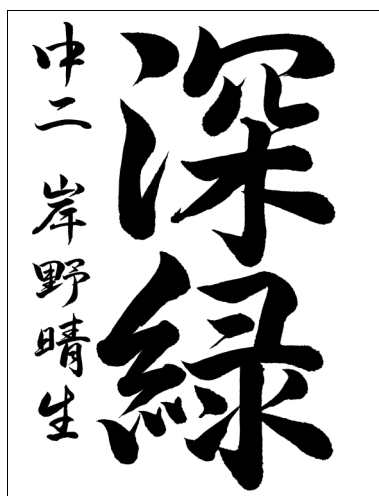 深緑
中二 岸野晴生